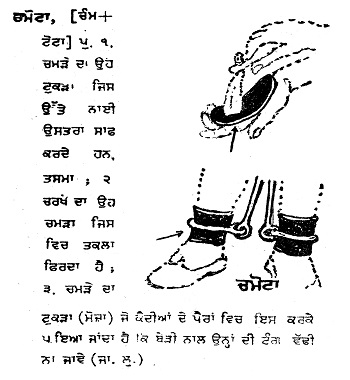 ਚਮੋਟਾ, [ਚੰਮ+
ਟੋਟਾ] ਪੁ. ੧.
ਚਮੜੇ ਦਾ ਉਹ
ਟੁਕੜਾ ਜਿਸ
ਉੱਤੇ ਨਾਈ
ਉਸਤਰਾ ਸਾਫ
ਕਰਦੇ ਹਨ,
ਤਸਮਾ ; ੨
ਚਰਖੇ ਦਾ ਉਹ
ਚਮੜਾ ਜਿਸ
ਵਿਚ ਤਕਲਾ
ਫਿਰਦਾ ਹੈ ;
੩. ਚਮੜੇ ਦਾ
ਚਮੋਟਾ
ਟੁਕੜਾ (ਮੋਜ਼ਾ) ਜੋ ਕੈਦੀਆਂ ਦੇ ਪੈਰਾਂ ਵਿਚ ਇਸ ਕਰਕੇ
ਪਾਇਆ ਜਾਂਦਾ ਹੈ ਕਿ ਬੇੜੀ ਨਾਲ ਉਨ੍ਹਾਂ ਦੀ ਟੰਗ ਵੱਢੀ
ਨਾ ਜਾਵੇ (ਜਾ. ਲੁ.)